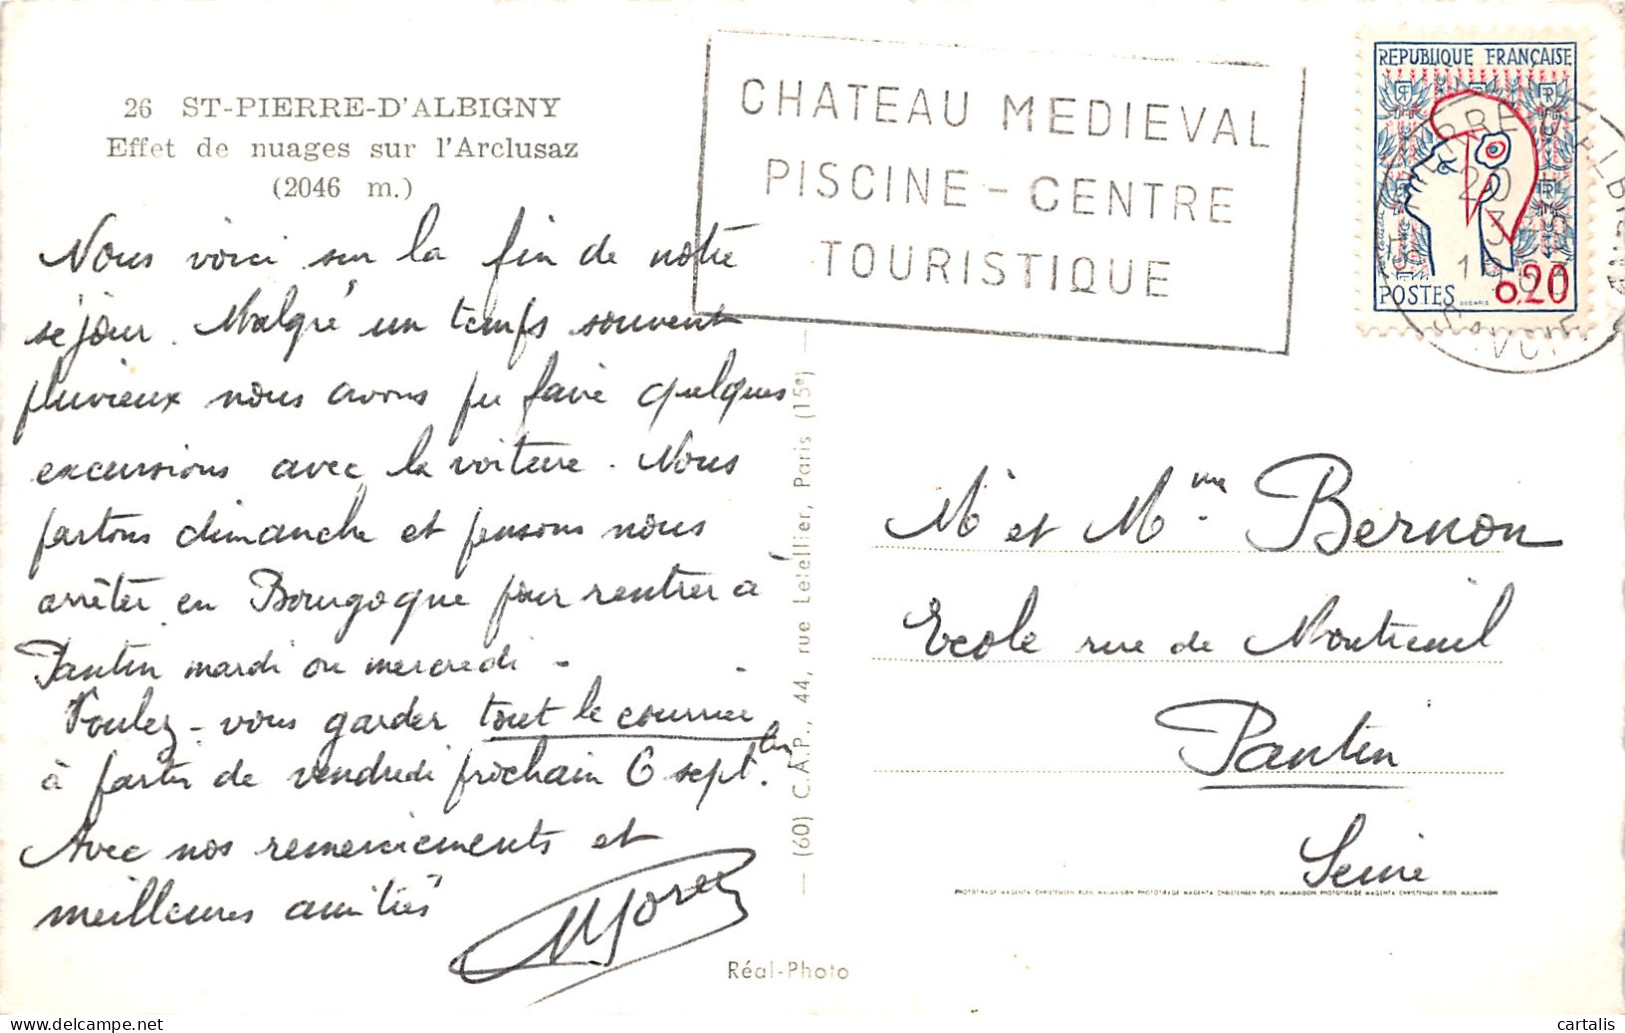 26 ST-PIERRE-D'ALBIGNY
Effet de nuages sur l'Arclusaz
(2046 m.)
CHATEAU MEDIEVAL
PISCINE - CENTRE
TOURISTIQUE
REPUBLIQUE FRANÇAISE
POSTES
0,20
Nous voici sur la fin de notre
séjour. Malgré un temps souvent
pluvieux nous avons pu faire quelques
excursions avec la voiture. Nous
partons dimanche et pensons nous
arrêter en Bourgogne pour rentrer à
Pantin mardi ou mercredi -
Voulez-vous garder tout le courrier
à partir de vendredi prochain 6 sept.
Avec nos remerciements et
meilleures amitiés
(60) C.A.P., 44, rue Letellier, Paris (15e)
Mr et Mme Bernon
Ecole rue de Montreuil
Pantin
Seine
PHOTOTIRAGE MAGENTA CHRISTENSEN RUEIL MALMAISON PHOTOTIRAGE MAGENTA CHRISTENSEN RUEIL MALMAISON PHOTOTIRAGE MAGENTA CHRISTENSEN RUEIL MALMAISON
Réal-Photo
cartalis
delcampe.net